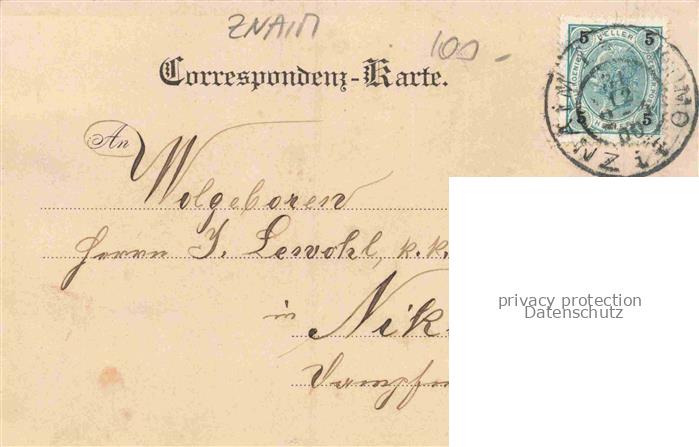 ZNAIM
100 -
Correspondenz-Karte.
5 HELLER 5
5 5
ZNAIM
31
12
00
An
Wolgeboren
Herrn J. Lewohl, k.k.
in Nik
privacy protection
Datenschutz